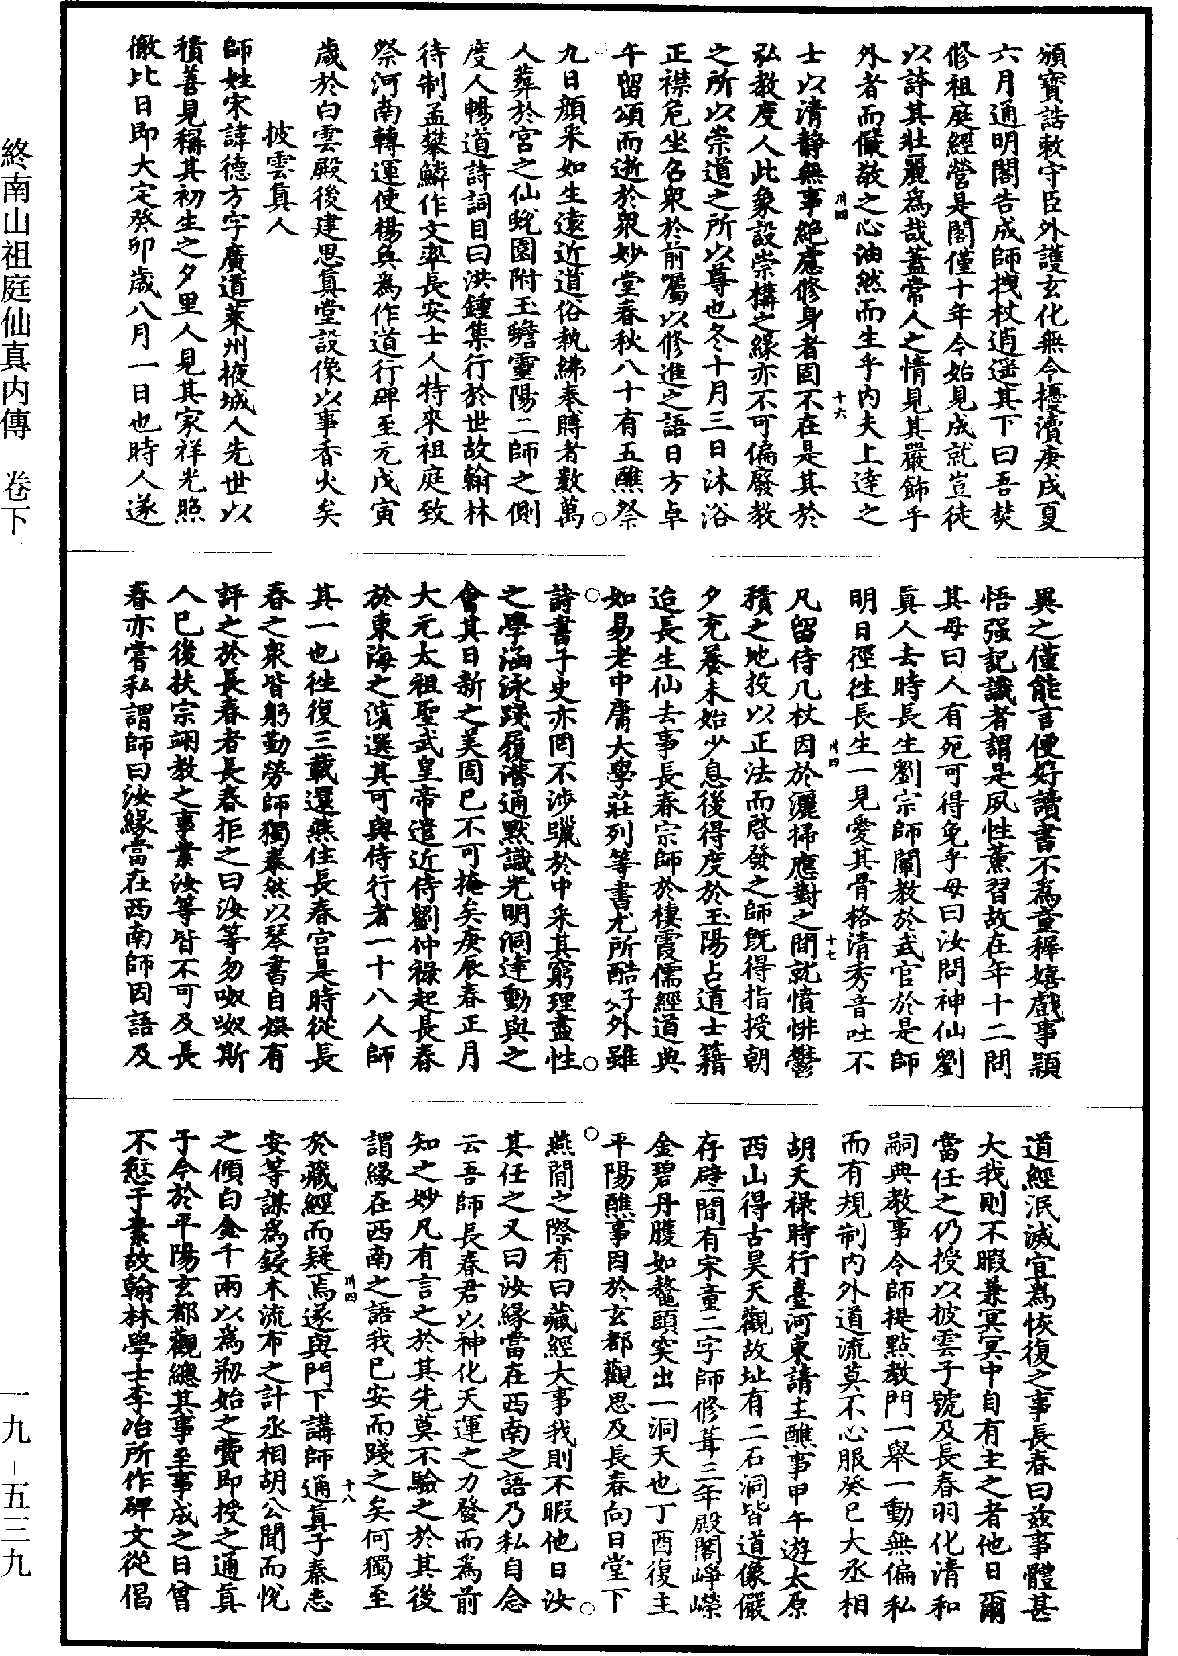 終南山祖庭仙真內傳　卷下
頒寶誥敕守臣外護玄化無令擾瀆庚戌夏
六月通明閣告成師拽杖逍遥其下曰吾焚
修祖庭經營是閣僅十年今始見成就豈徒
以誇其壯麗為哉蓋常人之情見其嚴飾乎
外者而儼敬之心油然而生乎內夫上達之
士以清静無事絕慮修身者固不在是其於
弘教度人此象設崇構之緣亦不可偏廢教
之所以崇道之所以尊也冬十月三日沐浴
正襟危坐名衆於前屬以修進之語日方卓
午留頌而逝於衆妙堂春秋八十有五醮祭
九日顏來如生遠近道俗執紼奉賻者數萬
人葬於宮之仙蛻園附玉蟾靈陽二師之側
度人暢道詩詞目曰洪鍾集行於世故翰林
待制孟攀鱗作文率長安士人特來祖庭致
祭河南轉運使楊奐為作道行碑至元戊寅
歲於白雲殿後建思真堂設像以事香火矣
披雲真人
師姓宋諱德方字廣道萊州掖城人先世以
積善見稱其初生之夕里人見其家祥光照
徹比日即大定癸卯歲八月一日也時人遂
川四
十六
異之僅能言便好讀書不為童稺嬉戲事穎
悟强記識者謂是夙性薰習故在年十二問
其母曰人有死可得免乎母曰汝問神仙劉
真人去時長生劉宗師闡教於武官於是師
明日徑往長生一見愛其骨格清秀音吐不
凡留侍几杖因於灑掃應對之間就憤悱鬱
積之地投以正法而啓發之師既得指授朝
夕充養未始少息後得度於玉陽占道士籍
迨長生仙去事長春宗師於棲霞儒經道典
如易老中庸大學莊列等書尤所酷好外雖
詩書子史亦罔不涉獵於中采其窮理盡性
之學涵泳踐履潛通默識光明洞達動與之
會其日新之美固已不可掩矣庚辰春正月
大元太祖聖武皇帝遣近侍劉仲祿起長春
於東海之濱選其可與侍行者一十八人師
其一也往復三載還燕住長春宮是時從長
春之衆皆躬勤勞師獨泰然以琴書自娛有
評之於長春者長春拒之曰汝等勿呶呶斯
人已後扶宗翊教之事業汝等皆不可及長
春亦嘗私謂師曰汝緣當在西南師因語及
川四
十七
道經泯滅宜為恢復之事長春曰兹事體甚
大我則不暇兼冥冥中自有主之者他日爾
當任之仍授以披雲子號及長春羽化清和
嗣典教事令師提點教門一舉一動無偏私
而有規制內外道流莫不心服癸巳大丞相
胡天祿時行臺河東請主醮事甲午遊太原
西山得古昊天觀故址有二石洞皆道像儼
存壁間有宋童二字師修葺三年殿閣崢嶸
金碧丹雘如鼇頭突出一洞天也丁酉復主
平陽醮事因於玄都觀思及長春向日堂下
燕閒之際有曰藏經大事我則不暇他日汝
其任之又曰汝緣當在西南之語乃私自念
云吾師長春君以神化天運之力發而為前
知之妙凡有言之於其先莫不驗之於其後
謂緣在西南之語我已安而踐之矣何獨至
於藏經而疑焉遂與門下講師通真子秦志
安等謀為鋟木流布之計丞相胡公聞而悅
之傾白金千兩以為剏始之費即授之通真
于令於平陽玄都觀總其事至事成之日曾
不愆于素故翰林學士李冶所作碑文從倡
川四
十八
一九－五三九